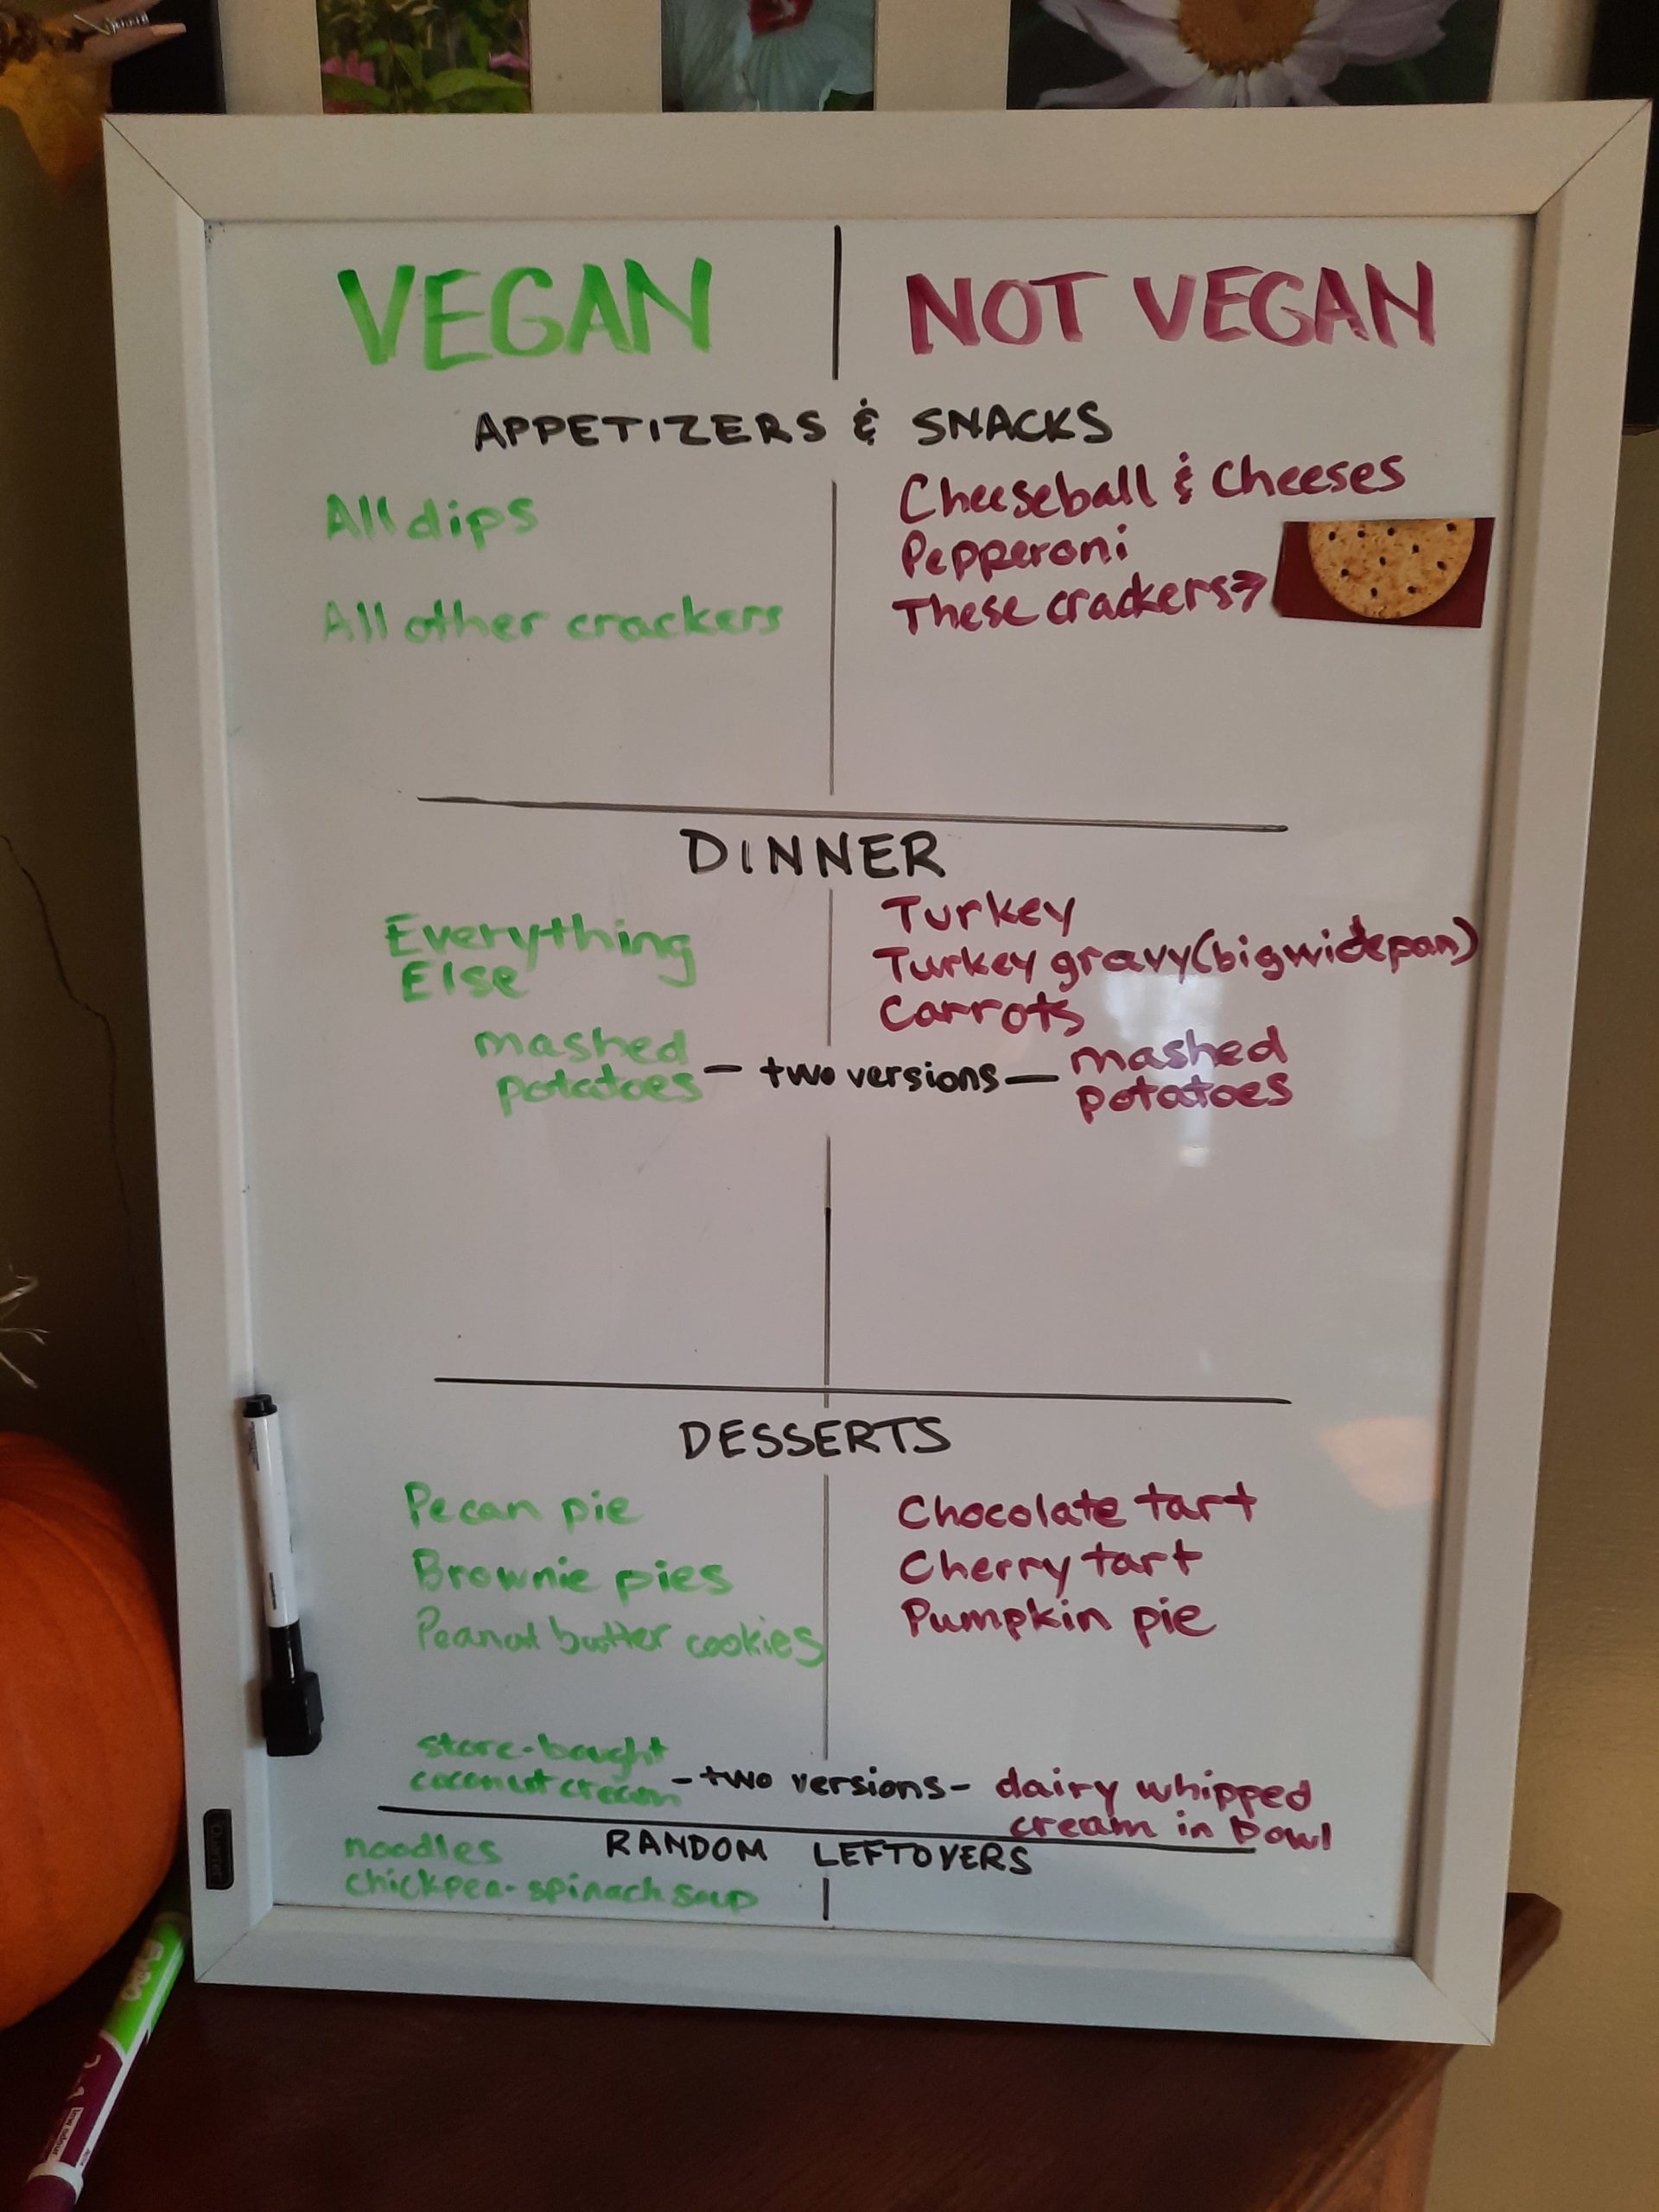 VEGAN
NOT VEGAN
APPETIZERS & SNACKS
All dips
All other crackers
Cheeseball & Cheeses
Pepperoni
These crackers→
DINNER
Everything
Else
mashed
potatoes
– two versions –
Turkey
Turkey gravy (big wide pan)
Carrots
mashed
potatoes
DESSERTS
Pecan pie
Brownie pies
Peanut butter cookies
Chocolate tart
Cherry tart
Pumpkin pie
store-bought
coconut cream
- two versions -
dairy whipped
cream in bowl
RANDOM LEFTOVERS
noodles
chickpea-spinach soup
Quartet